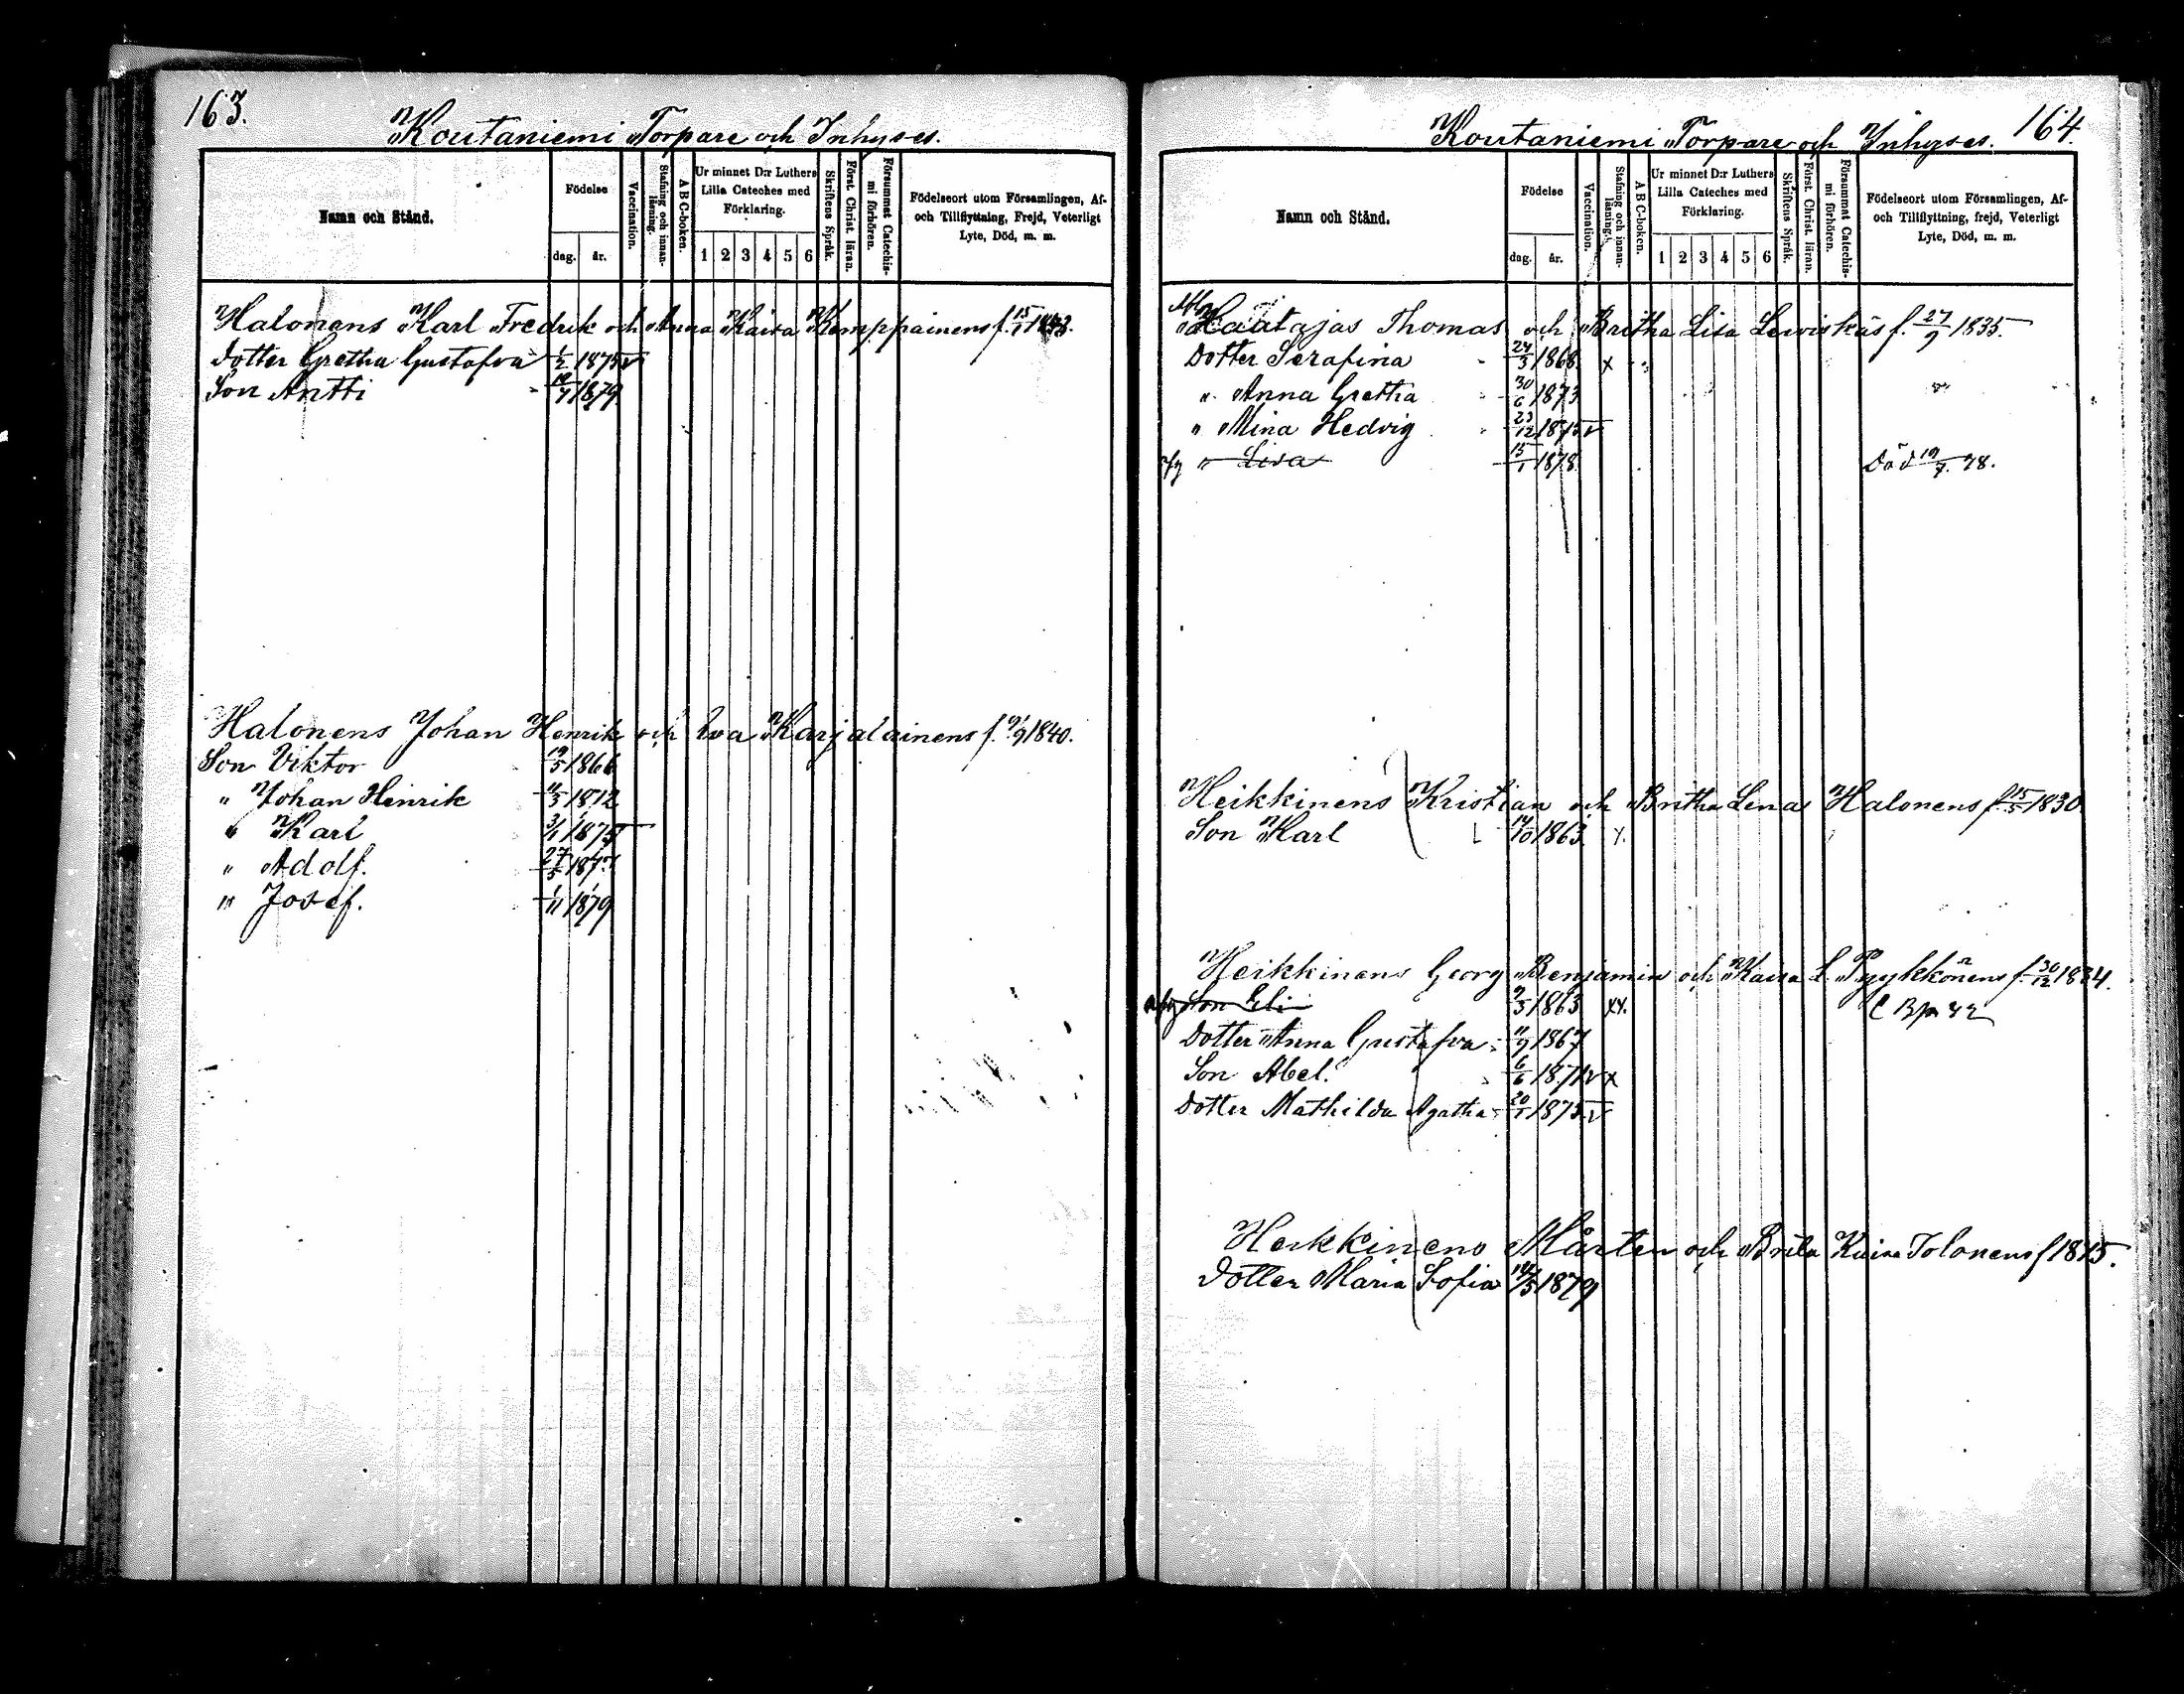 163.
Koutaniemi Torpare och Inhyses.
Namn och Stånd.
Födelse
dag. år.
Vaccination.
Stafning och innanläsning.
A B C-boken.
Ur minnet D:r Luthers Lilla Cateches med Förklaring.
1 2 3 4 5 6
Skriftens Språk.
Först. Christ. läran.
Försummat Catechismi förhören.
Födelseort utom Församlingen, Af- och Tillflyttning, Frejd, Veterligt Lyte, Död, m. m.
Halonens Karl Fredrik och Anna Kaisa Kemppainens f. 15/1
Dotter Gretha Gustafva 1/2 1875 v
Son Antti 1879
Halonens Johan Henrik och Eva Karjalainens f. 1840.
Son Viktor 19/5 1866
" Johan Henrik 11/3 1872
" Karl 3/1 1875
" Adolf. 27/5 1877
" Josef. 1/11 1879
164.
Koutaniemi Torpare och Inhyses.
Namn och Stånd.
Födelse
dag. år.
Vaccination.
Stafning och innanläsning.
A B C-boken.
Ur minnet D:r Luthers Lilla Cateches med Förklaring.
1 2 3 4 5 6
Skriftens Språk.
Först. Christ. läran.
Försummat Catechismi förhören.
Födelseort utom Församlingen, Af- och Tillflyttning, frejd, Veterligt Lyte, Död, m. m.
Haatajas Thomas och Britha Lisa Lewiskäs f. 27/9 1835.
Dotter Serafina 24/3 1868 x
" Anna Gretha 30/6 1873
" Mina Hedvig 23/12 1875 v
" Lisa 15/1 1878 Död 19/7 78.
Heikkinens Kristian och Britha Lena Halonens f. 15/5 1830
Son Karl 14/10 1863 x
Heikkinens Georg Benjamin och Kaisa L. Pyykkönens f. 30/12 1834.
Son Eli 9/5 1863 xx.
Dotter Anna Gustafva 11/9 1867
Son Abel. 6/6 1871 v x
Dotter Mathilda Agatha 20/1 1875 v
Heikkinens Mårten och Brita Kaisa Tolonens f
Dotter Maria Sofia 14/5 1879